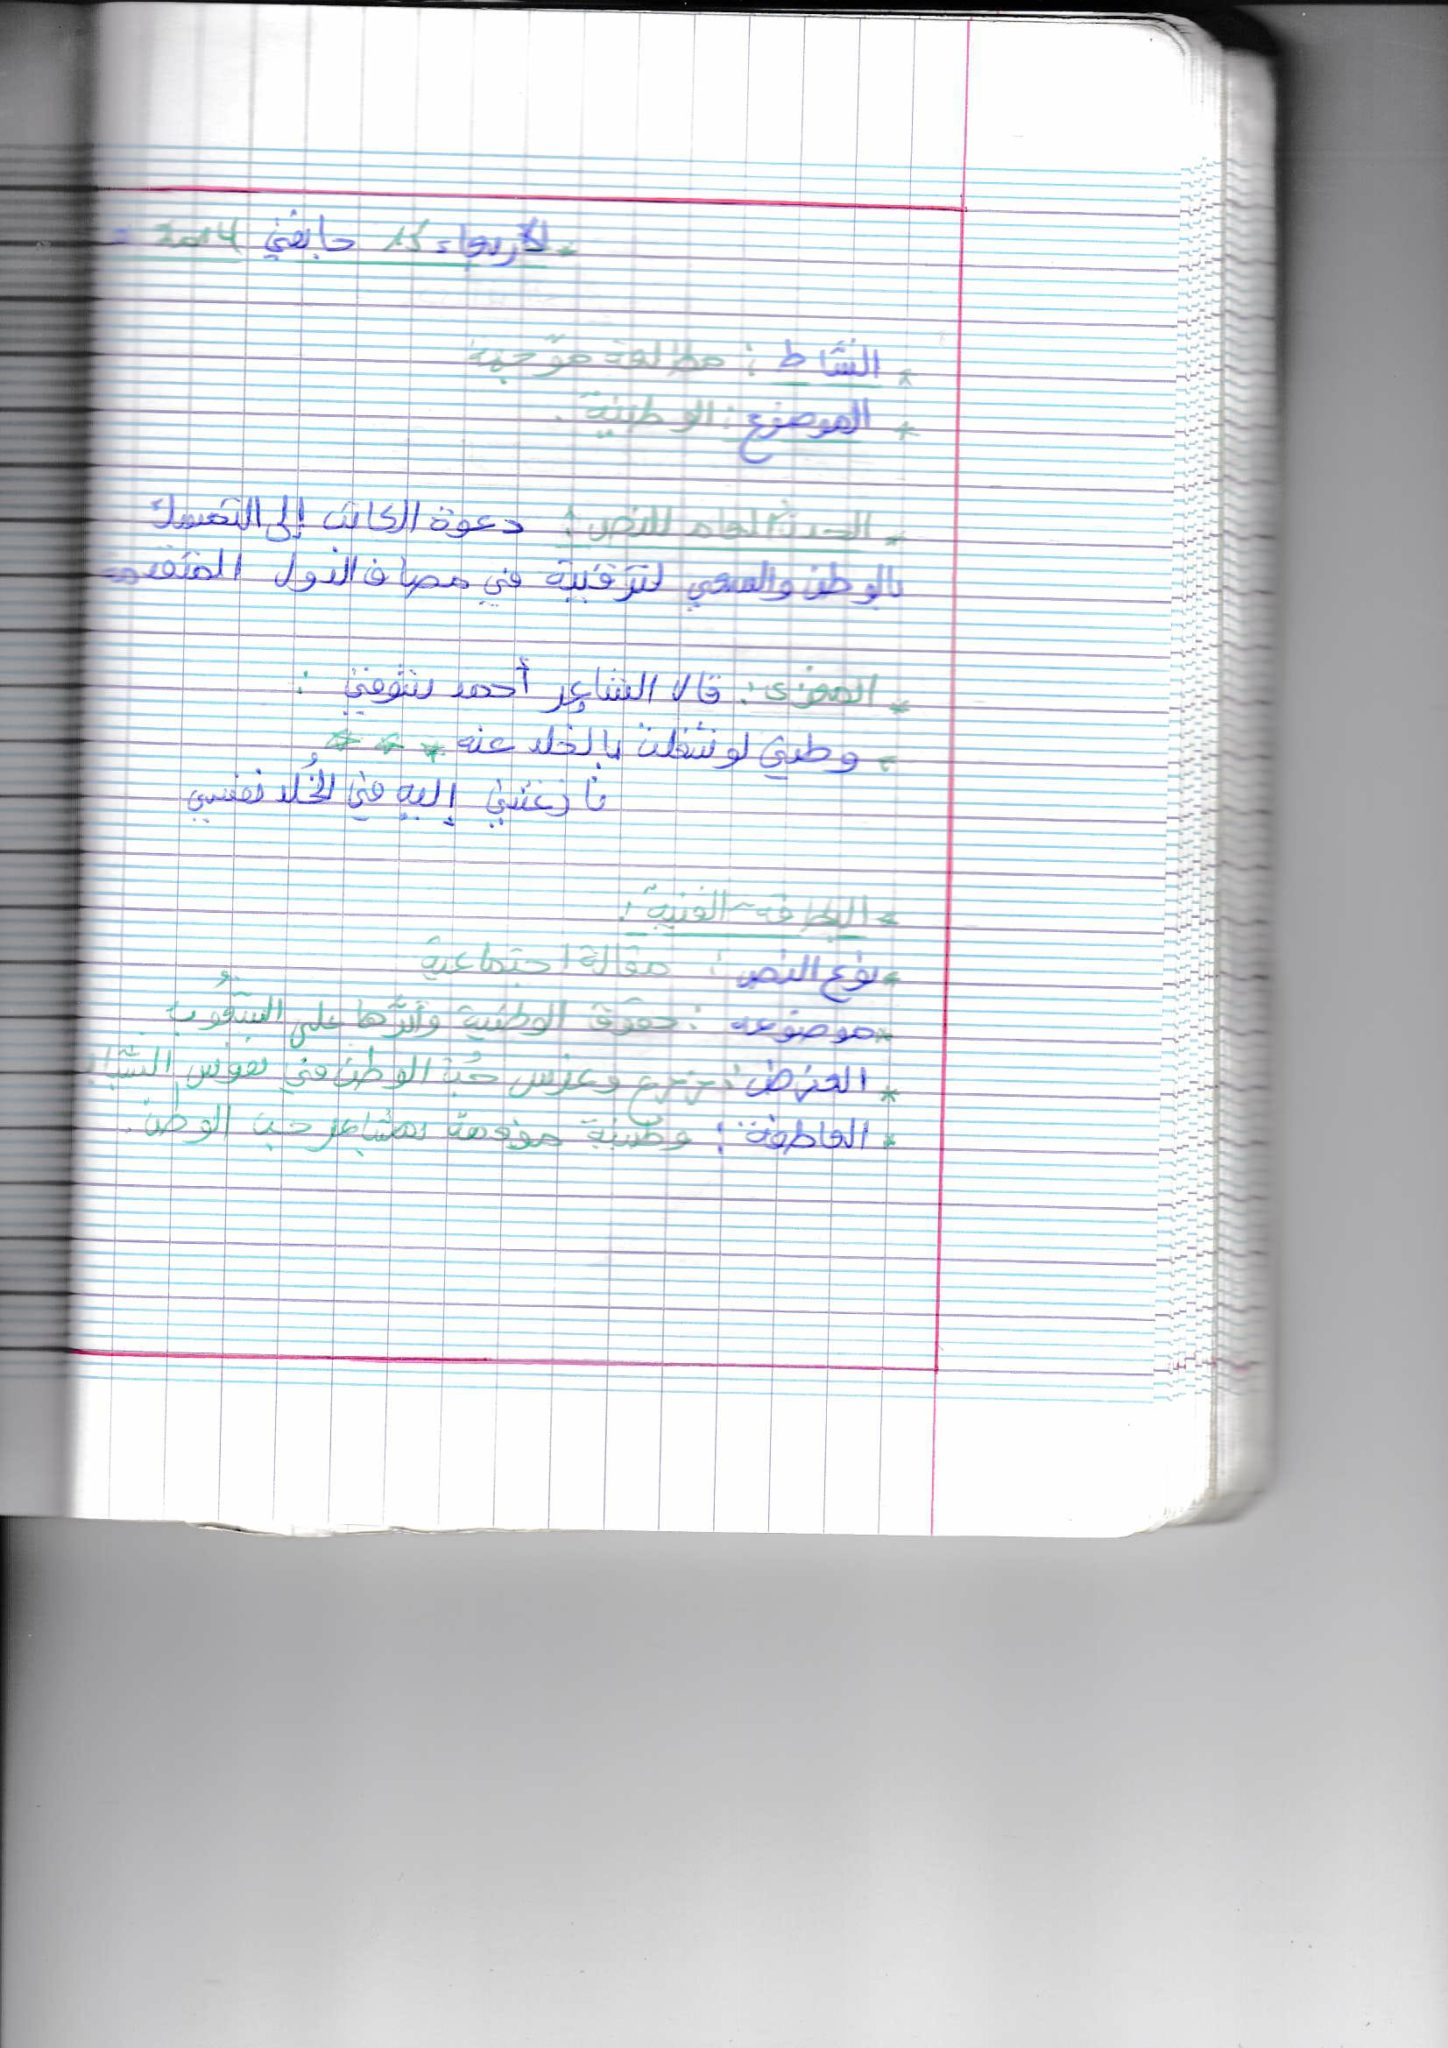 الأربعاء 15 جانفي 2014
* النشاط : مطالعة موجهة
* الموضوع : الوطنية .
* الحدث العام للنص : دعوة الكاتب إلى التمسك
بالوطن والسعي لترقيته في مصاف الدول المتقدمة
* المغزى : قال الشاعر أحمد شوقي :
- وطني لو شغلت بالخلد عنه * * *
نازعتني إليه في الخُلد نفسي
* البطاقة الفنية :
* نوع النص : مقالة اجتماعية
* موضوعه : حقوق الوطنية وأثرها على الشعُوب
* الغرض : زرع وغرس حُبّ الوطن في نفوس الشباب
* العاطفة : وطنية مفعمة بمشاعر حب الوطن .